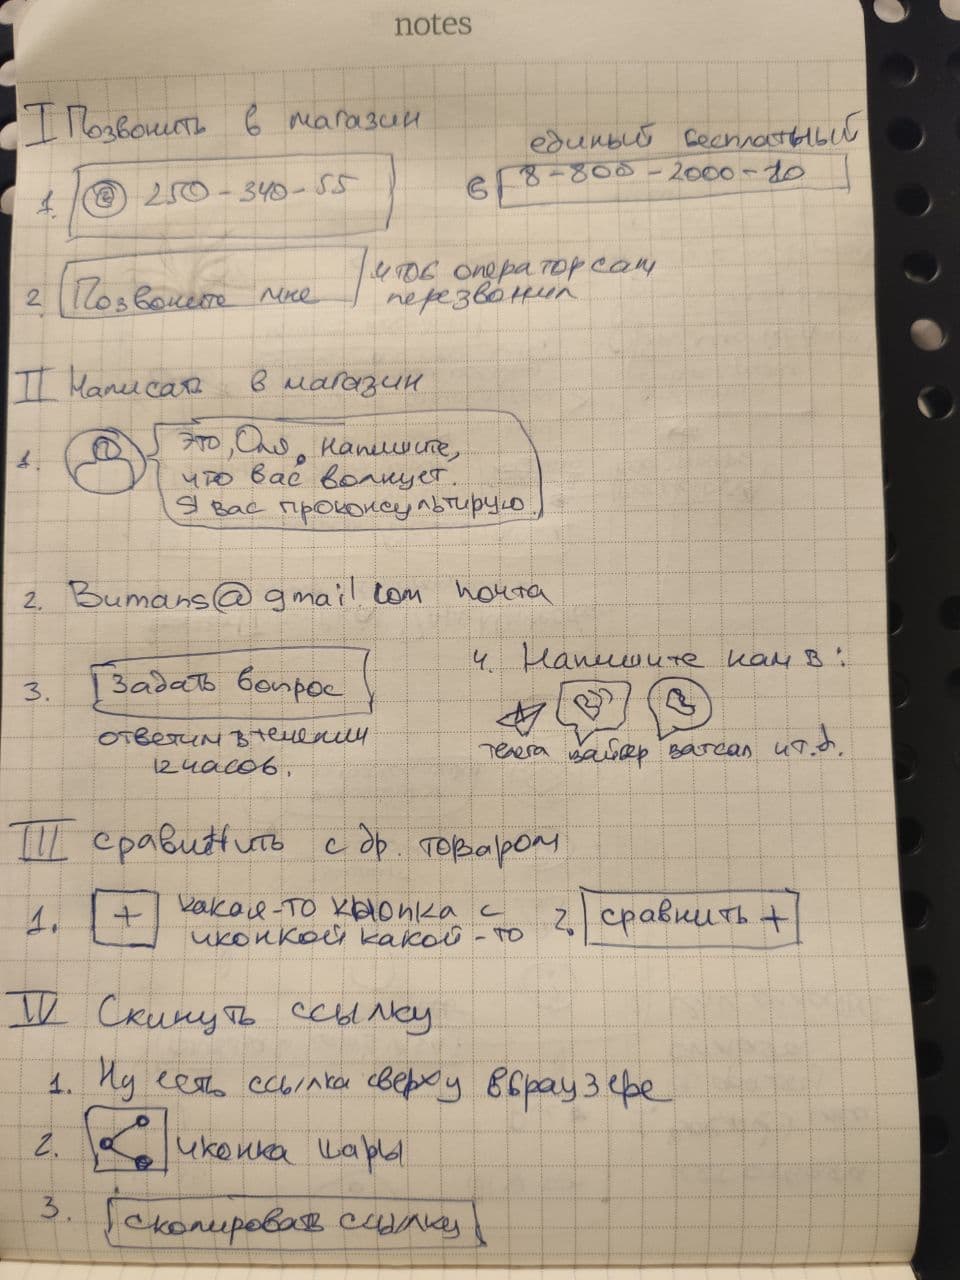 notes
I Позвонить в магазин
1. 250-340-55
единый бесплатный
б 8-800-2000-10
2. Позвоните мне
чтоб оператор сам
перезвонил
II Написать в магазин
1. Это, Оля, напишите,
что вас волнует.
Я вас проконсультирую.
2. Bumans@gmail.com почта
3. Задать вопрос
ответим в течении
12 часов.
4. Напишите нам в:
телега вайбер ватсап и т.д.
III сравнить с др. товаром
1. + какая-то кнопка с
иконкой какой-то
2. сравнить +
IV Скинуть ссылку
1. Ну есть ссылка сверху в браузере
2. иконка шары
3. скопировать ссылку